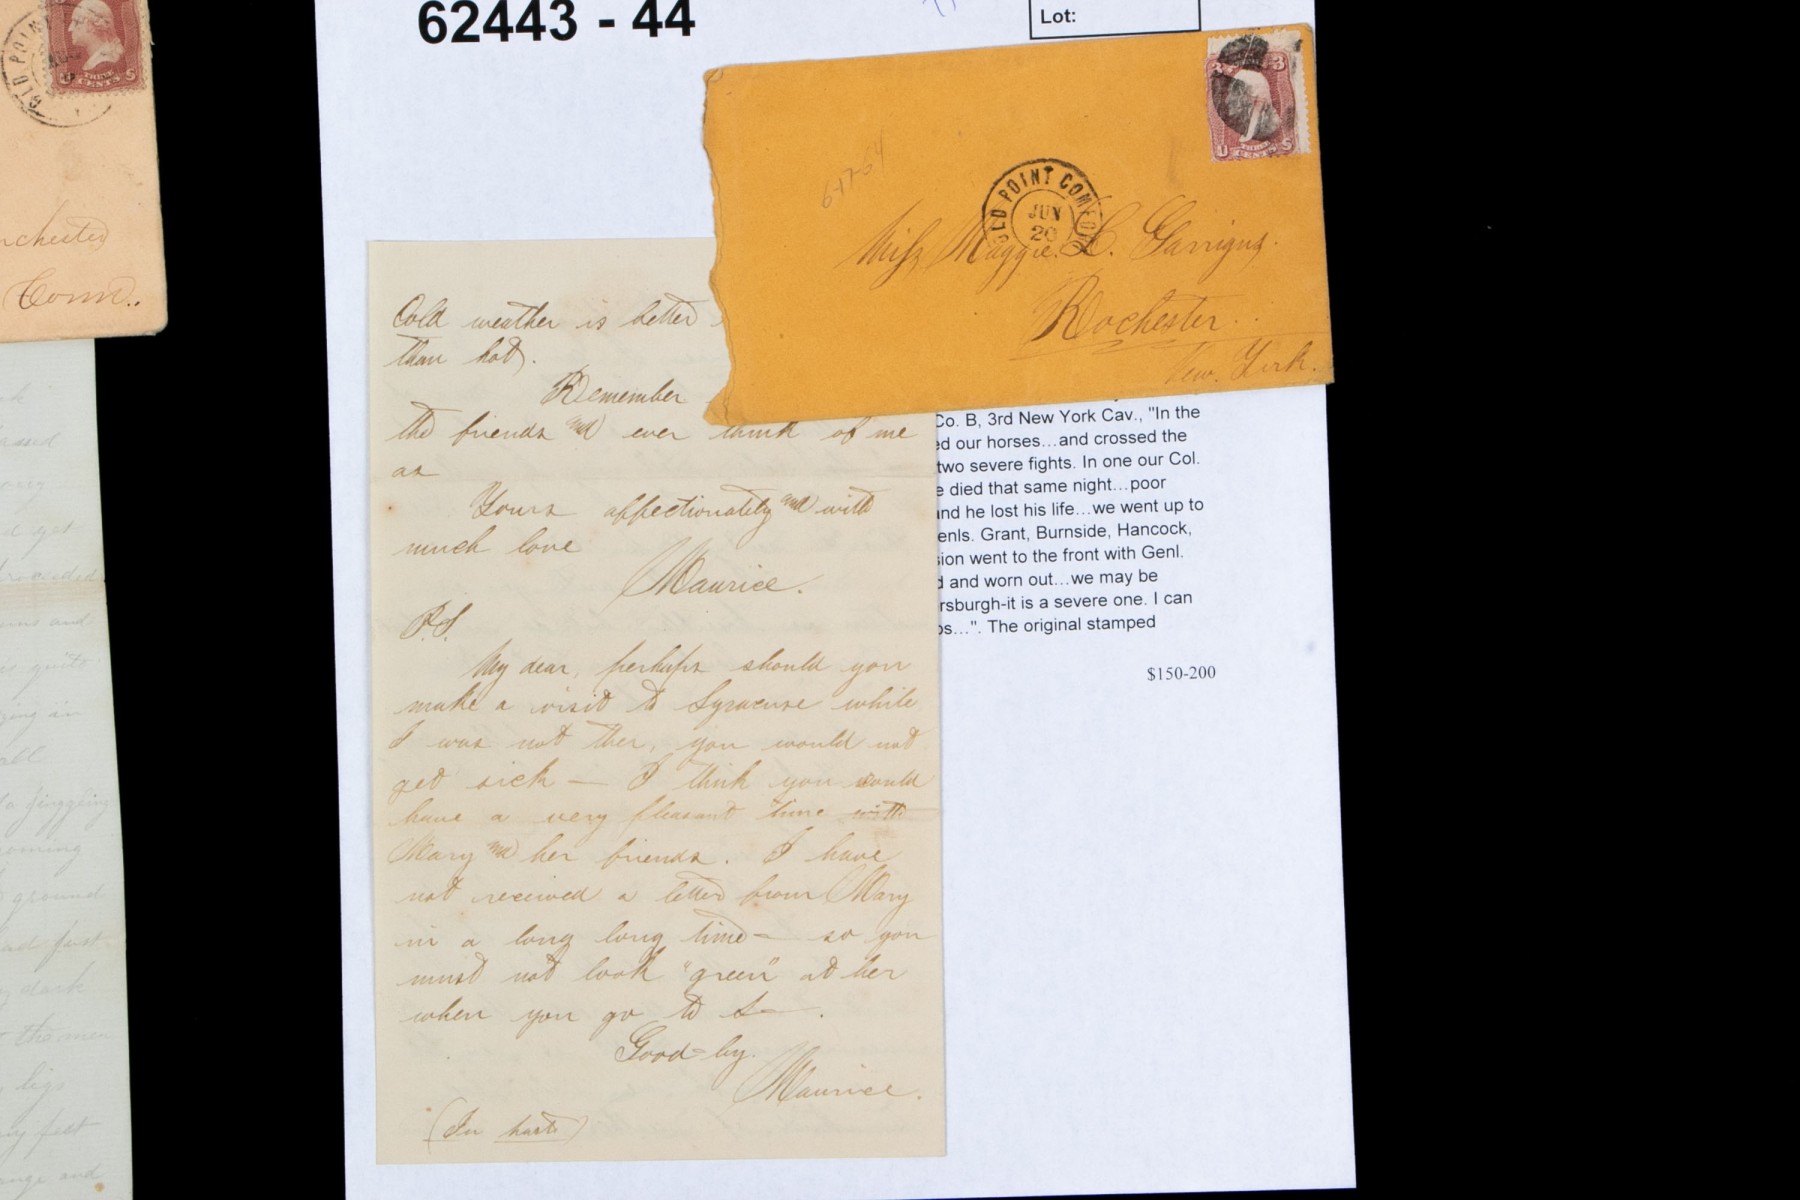 62443 - 44
Lot:
OLD POINT COMFORT
JUN
20
3 3
U THREE S
CENTS
6-17-64
Miss Maggie C. Garrigus.
Rochester.
New. York.
Cold weather is better
than hot.
Remember
the friends and ever think of me
as
Yours affectionately and with
much love
Maurice.
P.S.
My dear, perhaps should you
make a visit to Syracuse while
I was not ther, you would not
get sick — I think you would
have a very pleasant time with
Mary and her friends. I have
not received a letter from Mary
in a long long time — so you
must not look "green" at her
when you go to S—.
Good-by.
Maurice.
(In haste)
Co. B, 3rd New York Cav., "In the
ed our horses…and crossed the
two severe fights. In one our Col.
e died that same night…poor
and he lost his life…we went up to
enls. Grant, Burnside, Hancock,
sion went to the front with Genl.
d and worn out…we may be
rsburgh-it is a severe one. I can
os…". The original stamped
$150-200
OLD POIN
THREE
CENTS
nchester
Conn..
d get
proceeded
ms and
ging in
all
a jigging
coming
ground
dark
the men
legs
my feet
ange and